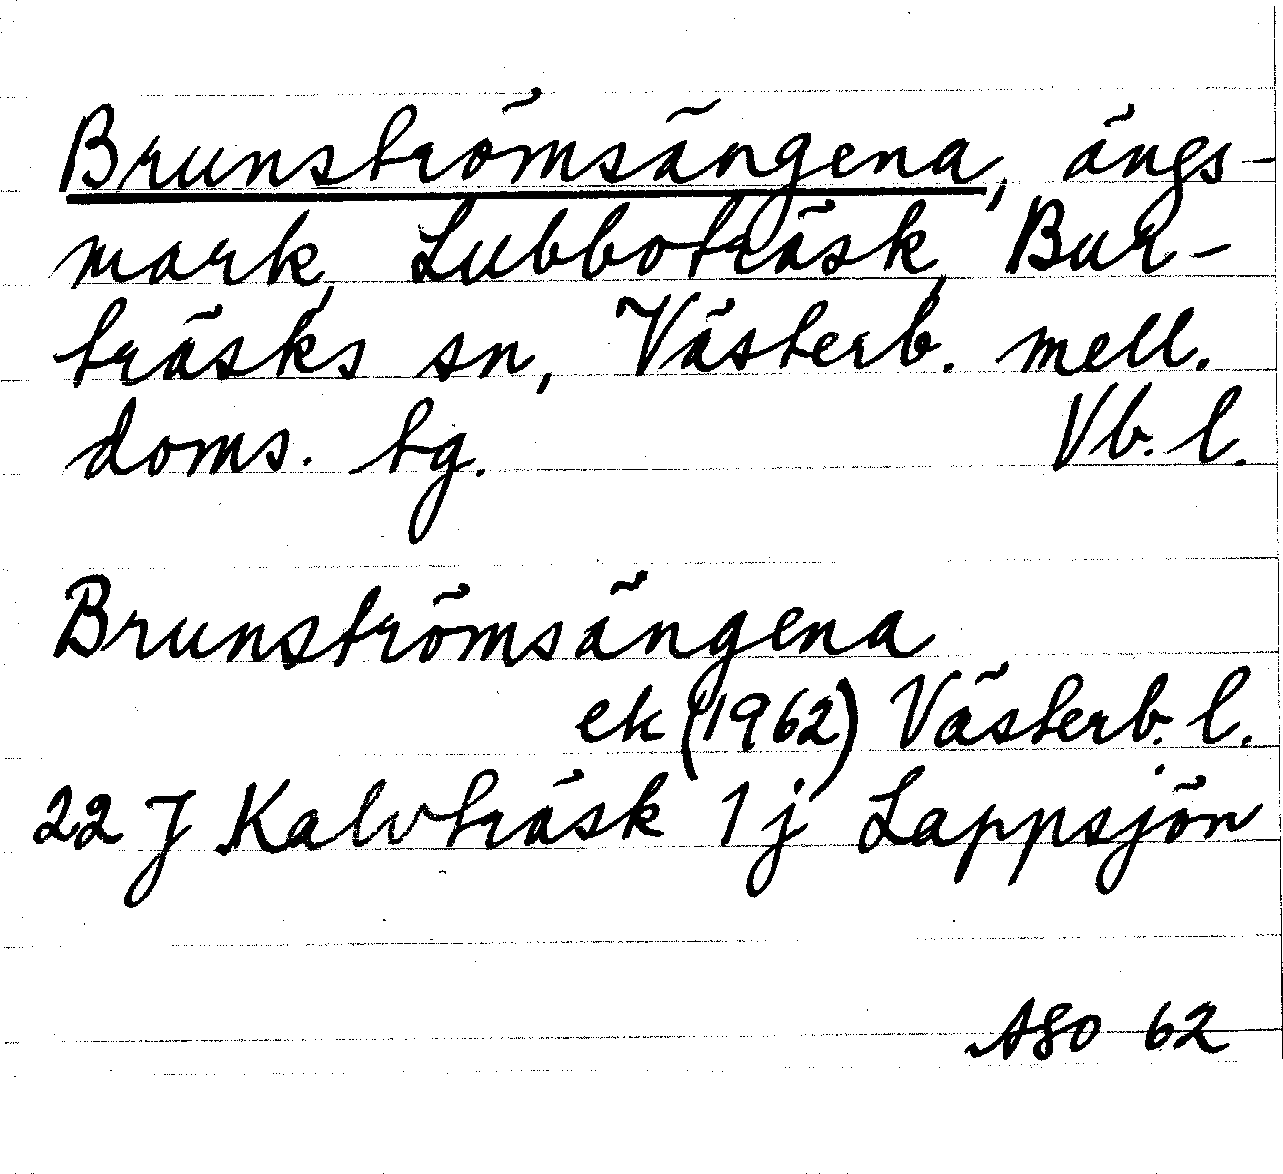 Brunströmsängena, ängs-
mark, Lubboträsk, Bur-
träsks sn, Västerb. mell.
doms. tg. Vb. l.
Brunströmsängena
ek (1962) Västerb. l.
22 J Kalvträsk 1 j Lappsjön
ASO 62